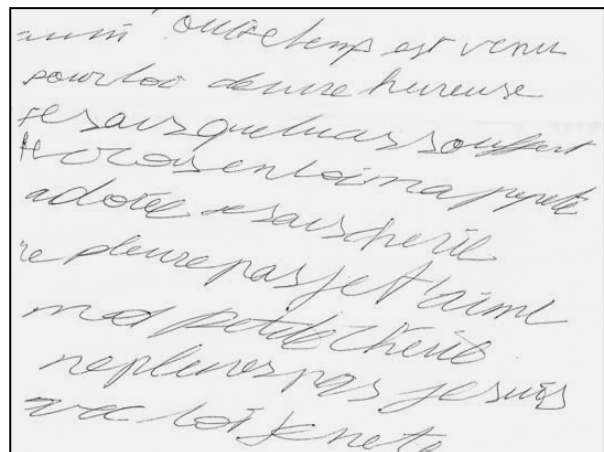 oui le temps est venu
pour toi de vivre hureuse
je sais que tu as souffert
je crois en toi ma pepete
adorée je sais cherie
ne pleure pas je t'aime
ma petite cherie
ne pleures pas je suis
avec toi je ne te